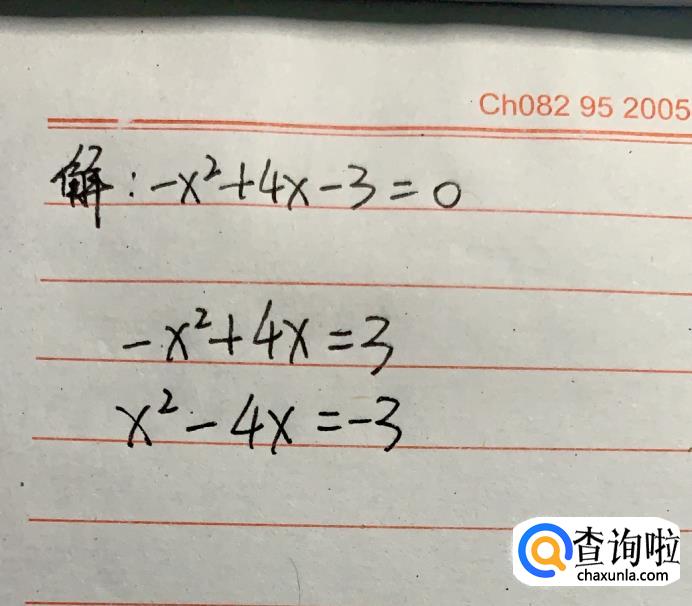 Ch082 95 2005
解:-x²+4x-3=0
-x²+4x=3
x²-4x=-3
查询啦
chaxunla.com